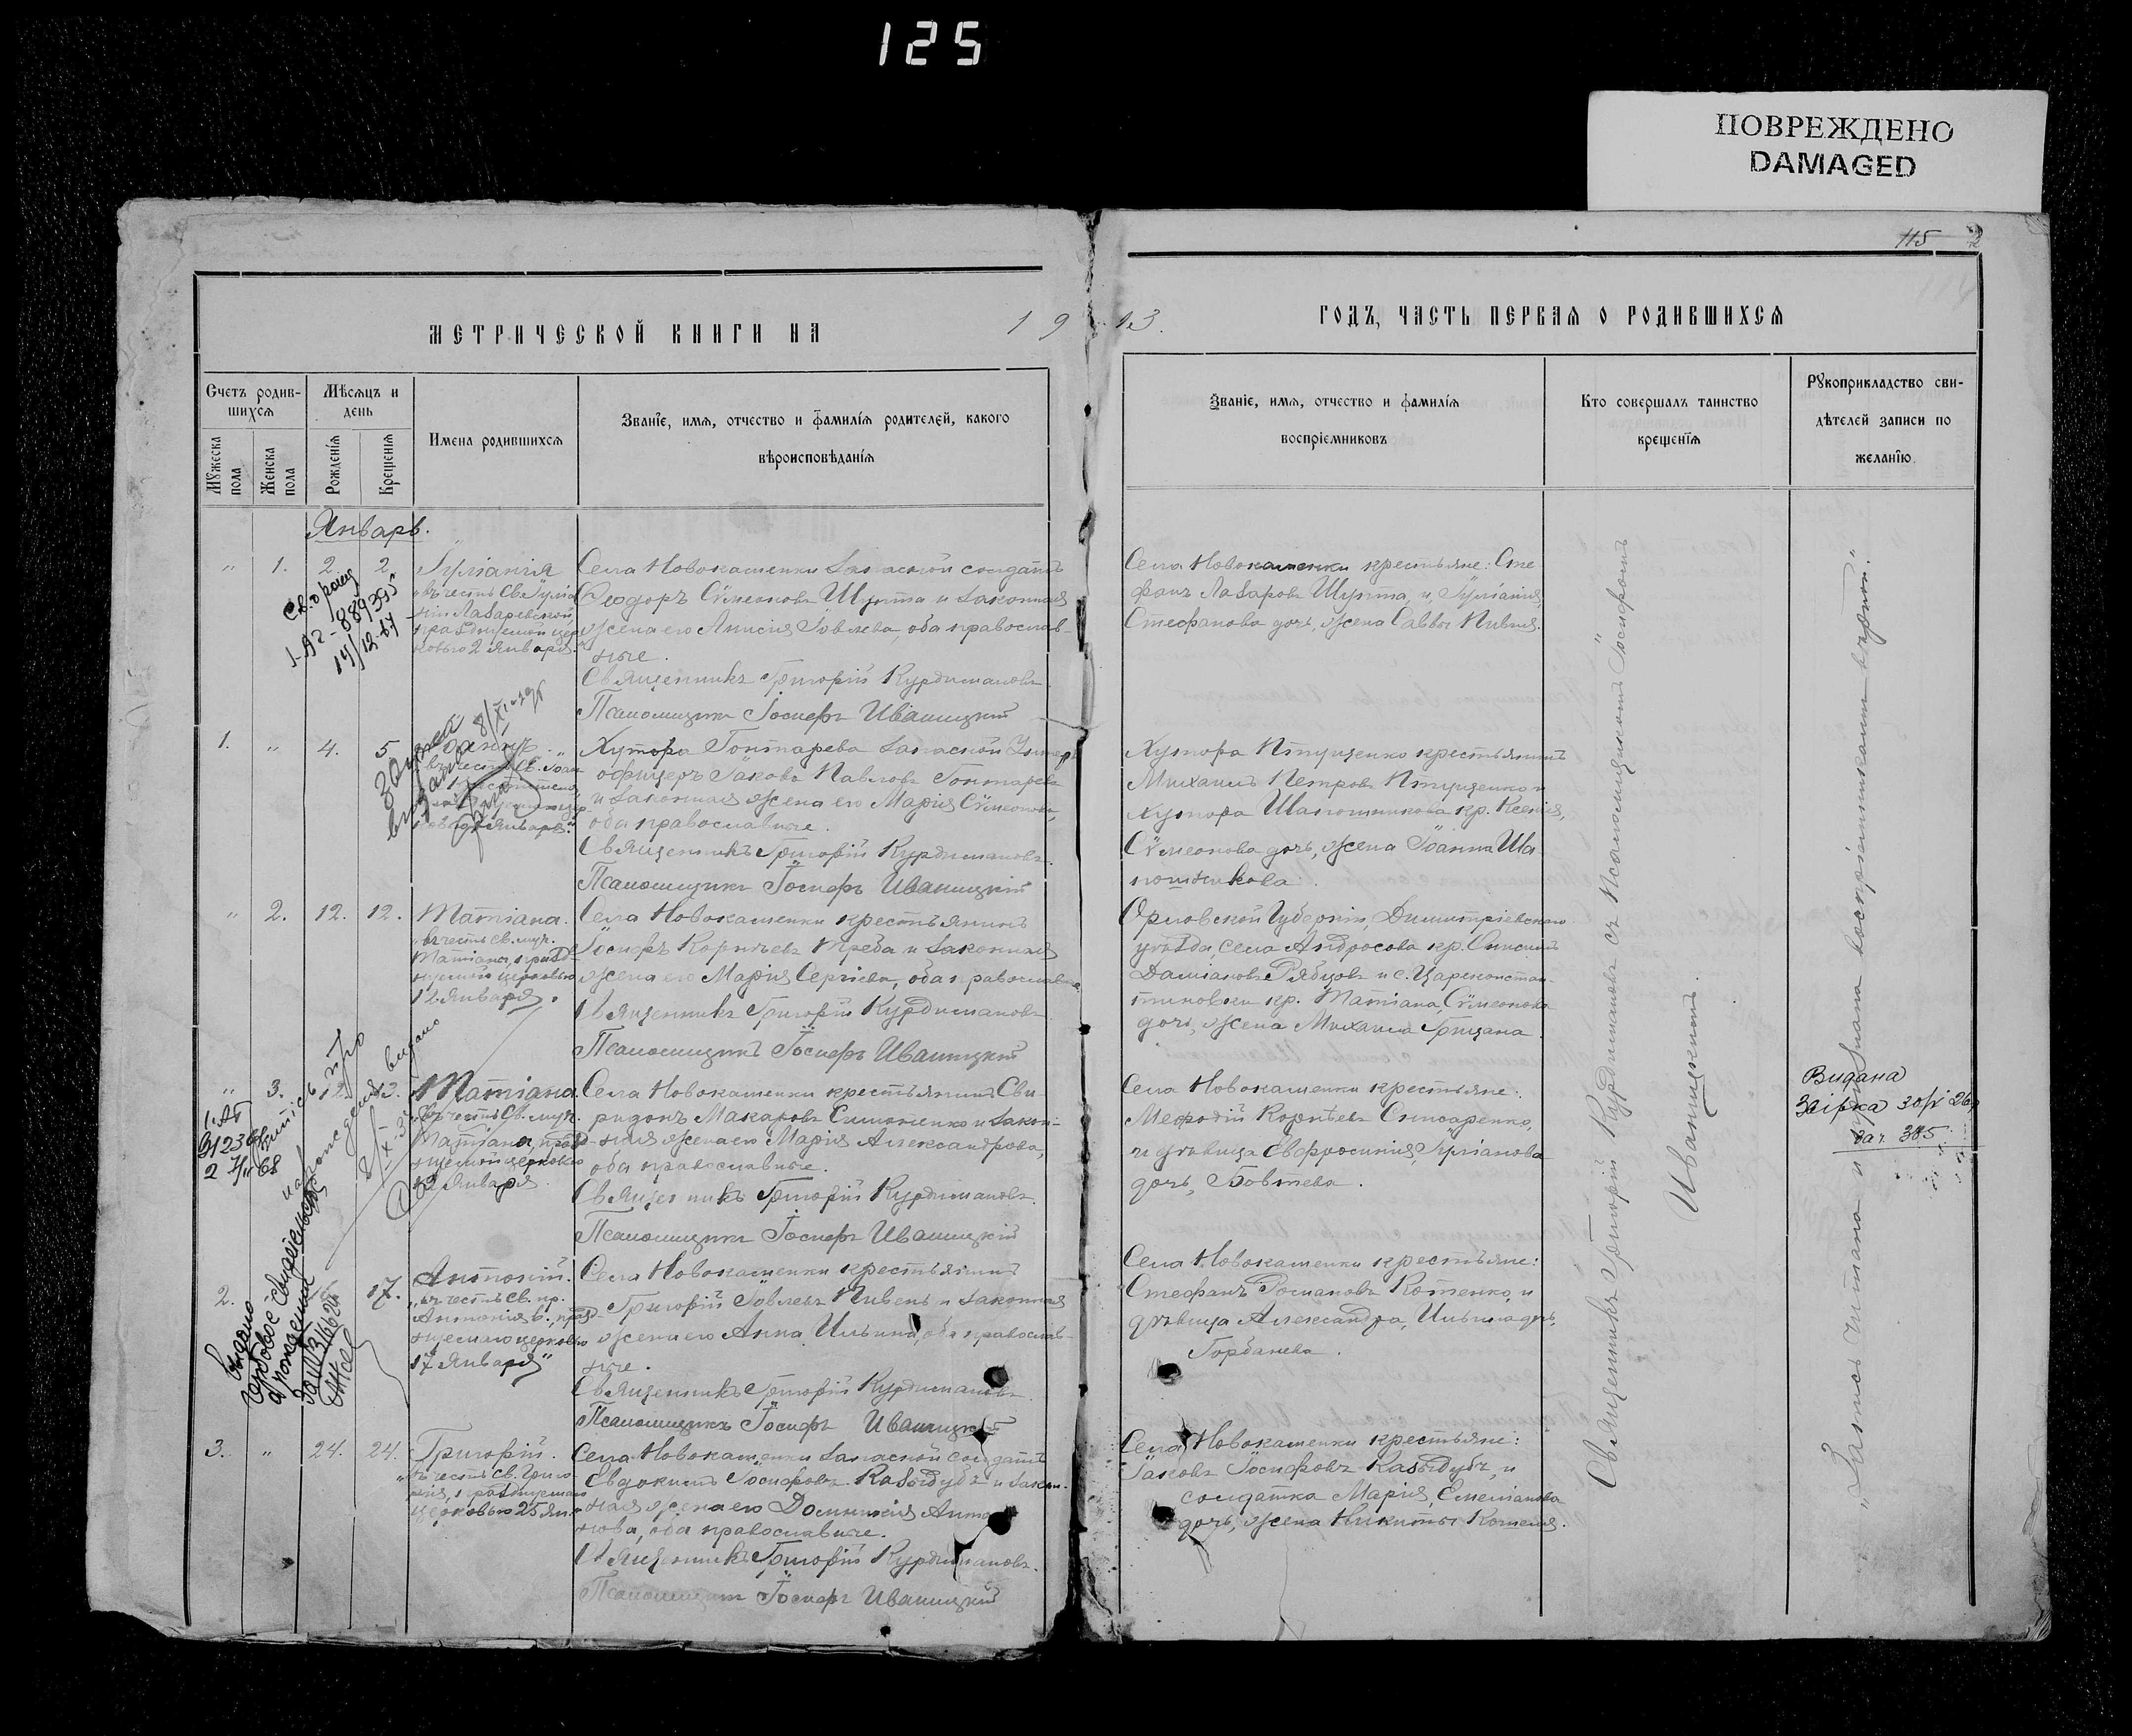 125
ПОВРЕЖДЕНО
DAMAGED
115 2
МЕТРИЧЕСКОЙ КНИГИ НА 19
13. ГОДЪ, ЧАСТЬ ПЕРВАЯ О РОДИВШИХСЯ
Счетъ родив-
шихся
Мѣсяцъ и
день
Мужеска
пола
Женска
пола
Рожденїя
Крещенїя
Имена родившихся
Званїе, имя, отчество и фамилїя родителей, какого
вѣроисповѣданїя
Званїе, имя, отчество и фамилїя
воспрїемниковъ
Кто совершалъ таинство
крещенїя
Рукоприкладство сви-
дѣтелей записи по
желанїю
Январь.
" 1. 2. 2
Іуліанія
въ честь Св. Іуліа
ніи Лазаревской,
празднуемой цер
ковью 2 Января.
Села Новокаменки запасной солдатъ
Ѳеодоръ Сѵмеоновъ Шупта и законная
жена его Анисія Іовлева оба православ-
ные.
Священникъ Григорій Курдимановъ
Псаломщикъ Іосифъ Иваницкій
Села Новокаменки крестьяне: Сте
фанъ Лазаровъ Шупта, и, Іуліанія,
Стефанова дочь, жена Саввы Пивня.
1. " 4. 5
Хутора Гонтарева запасной Унтеръ
офицеръ Іаковъ Павловъ Гонтаревъ
и законная жена его Марія Сѵмеонова,
оба православные.
Священникъ Григорій Курдимановъ.
Псаломщикъ Іосифъ Иваницкій
Хутора Птущенко крестьянинъ
Михаилъ Петровъ Птущенко и
хутора Шапошникова кр. Ксенія,
Сѵмеонова дочь, жена Іоанна Ша
пошникова.
" 2. 12. 12.
Татіана.
въ честь св. муч.
Татіаны, празд-
нуемой церковью
12 Января.
Села Новокаменки крестьянинъ
Іосифъ Корніевъ Треба и законная
жена его Марія Сергіева, оба православные
Священникъ Григорій Курдимановъ
Псаломщикъ Іосифъ Иваницкій
Орловской Губерніи, Димитріевскаго
уѣзда, села Андросова кр. Онисимъ
Даміановъ Рябцовъ и с. Цареконстан-
тиновки кр. Татіана, Сѵмеонова
дочь, жена Михаила Грицана.
" 3. 12. 12.
Татіана
въ честь св. муч.
Татіаны, празд-
нуемой церковью
12 Января.
Села Новокаменки крестьянинъ Спи-
ридонъ Макаровъ Симоненко и закон-
ная жена его Марія Александрова,
оба православные.
Священникъ Григорій Курдимановъ.
Псаломщикъ Іосифъ Иваницкій
Села Новокаменки крестьяне:
Меѳодій Корнѣевъ Слюсаренко,
и дѣвица Евфросинія, Іуліанова
дочь, Бовтева.
Видана
2. 17.
Антоній.
въ честь св. пр.
Антонія в., празд-
нуемаго церковью
17 Января"
Села Новокаменки крестьянинъ
Григорій Іовлевъ Пивень и законная
жена его Анна Ильина, оба православ-
ные.
Священникъ Григорій Курдимановъ.
Псаломщикъ Іосифъ Иваницкій
Села Новокаменки крестьяне:
Стефанъ Романовъ Котенко, и
дѣвица Александра, Ильина дочь,
Горбанева.
Видано
гербовое свидетельство
о рождении
3. " 24. 24.
Григорій.
въ честь св. Григо
рія, празднуемаго
церковью 25 Ян.
Села Новокаменки запасной солдатъ
Евдокимъ Іосифовъ Казыдубъ и закон-
ная жена его Домникія Анто
нова, оба православные.
Священникъ Григорій Курдимановъ.
Псаломщикъ Іосифъ Иваницкій
Села Новокаменки крестьяне:
Іаковъ Іосифовъ Казыдубъ, и
солдатка Марія, Емеліанова
дочь, жена Никиты Котеня.
Священникъ Григорій Курдимановъ съ Псаломщикомъ Іосифомъ
Иваницкимъ.